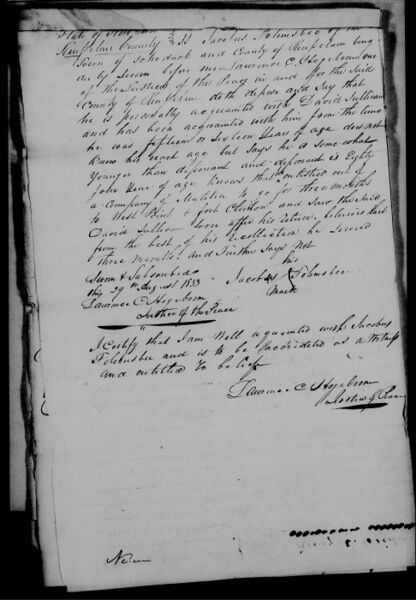 State of New
Rensselaer County } SS Jacobus Tolemsbee of the
Town of Schodack and County of Rensselaer being
duly Sworn before me Lawrence C Hogeboom one
of the Justices of the Peace in and for the Said
County of Rensselaer doth depose and Say that
he is personally acquainted with David Sulliven
and has been acquainted with him from the time
he was fifteen or Sixteen years of age does not
know his exact age but Says he is some what
younger than deponant and deponant is Eighty
years of age knows that out of
a Company of Malitia to go for three months
to West Point & fort Clinton and Saw the Said
David Sulliven Soon after his return, believes that
from the best of his recollection he Served
three months and further Says Not
Sworn & Subscribed his
this 29th August 1833 Jacobus Tolemsbee
Lawrence C Hogeboom mark
Justice of the Peace
I Certify that I am Well aquanted with Jacobus
Tolemsbee and is to be as a Witness
and entitled to belief
Lawrence C Hogeboom
Justice of Peace